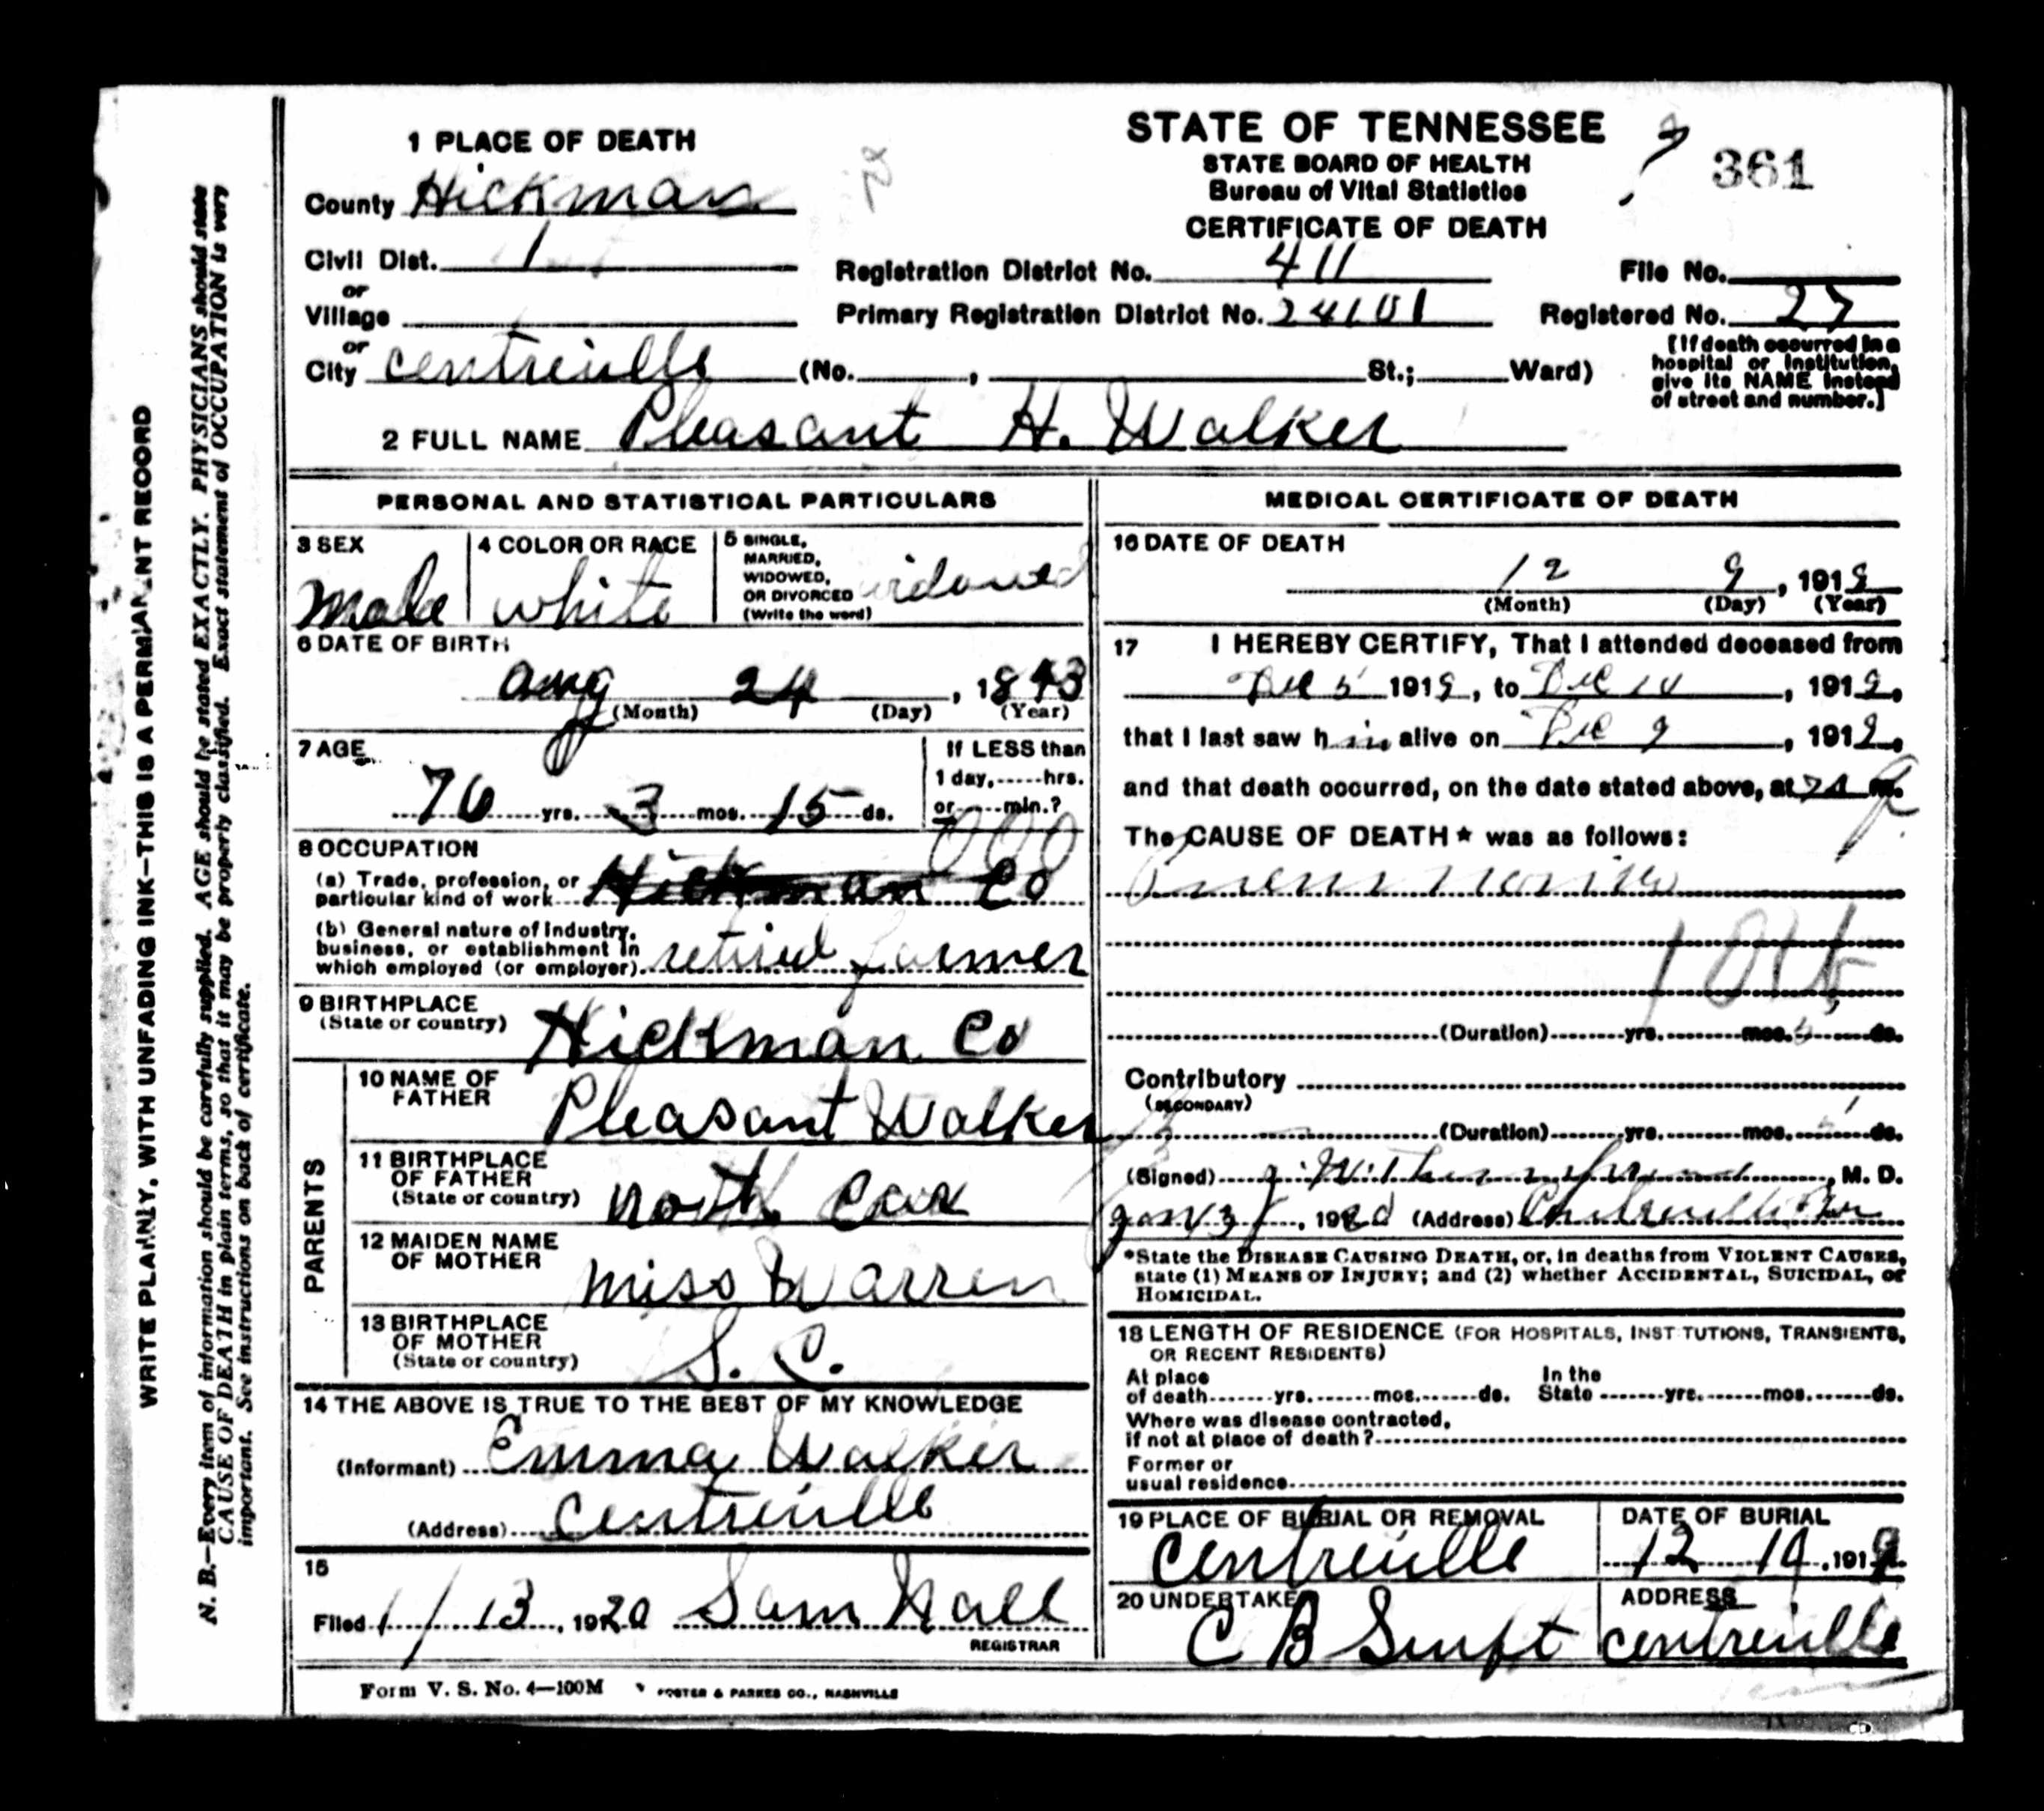 WRITE PLAINLY, WITH UNFADING INK—THIS IS A PERMANENT RECORD
N. B.—Every item of information should be carefully supplied. AGE should be stated EXACTLY. PHYSICIANS should state
CAUSE OF DEATH in plain terms, so that it may be properly classified. Exact statement of OCCUPATION is very
important. See instructions on back of certificate.
STATE OF TENNESSEE
STATE BOARD OF HEALTH
Bureau of Vital Statistics
CERTIFICATE OF DEATH
361
1 PLACE OF DEATH
County Hickman
Civil Dist. 1
or
Village
or
City Centreville (No. , St.; Ward)
Registration District No. 411
File No.
Primary Registration District No. 24101
Registered No. 27
[If death occurred in a
hospital or institution,
give its NAME instead
of street and number.]
2 FULL NAME Pleasant H. Walker
PERSONAL AND STATISTICAL PARTICULARS
3 SEX
male
4 COLOR OR RACE
white
5 SINGLE,
MARRIED,
WIDOWED,
OR DIVORCED
(Write the word)
widowed
6 DATE OF BIRTH
Aug 24, 1843
(Month) (Day) (Year)
7 AGE
76 yrs. 3 mos. 15 ds.
If LESS than
1 day, hrs.
or min.?
8 OCCUPATION
(a) Trade, profession, or
particular kind of work Hickman Co
000
(b) General nature of industry,
business, or establishment in
which employed (or employer) retired farmer
9 BIRTHPLACE
(State or country)
Hickman Co
PARENTS
10 NAME OF
FATHER
Pleasant Walker
11 BIRTHPLACE
OF FATHER
(State or country)
North Car
12 MAIDEN NAME
OF MOTHER
Miss Warren
13 BIRTHPLACE
OF MOTHER
(State or country)
S. C.
14 THE ABOVE IS TRUE TO THE BEST OF MY KNOWLEDGE
(Informant) Emma Walker
(Address) Centreville
15
Filed 1/13, 1920 Sam Nall
REGISTRAR
MEDICAL CERTIFICATE OF DEATH
16 DATE OF DEATH
12 9, 1919
(Month) (Day) (Year)
17 I HEREBY CERTIFY, That I attended deceased from
Dec 5 1919, to Dec 10, 1919,
that I last saw him alive on Dec 9, 1919,
and that death occurred, on the date stated above, at m.
The CAUSE OF DEATH* was as follows:
Pneumonia
(Duration) yrs. mos. 5 ds.
Contributory
(SECONDARY)
(Duration) yrs. mos. ds.
(Signed) , M. D.
, 1920 (Address) Centreville
*State the DISEASE CAUSING DEATH, or, in deaths from VIOLENT CAUSES,
state (1) MEANS OF INJURY; and (2) whether ACCIDENTAL, SUICIDAL, or
HOMICIDAL.
18 LENGTH OF RESIDENCE (FOR HOSPITALS, INSTITUTIONS, TRANSIENTS,
OR RECENT RESIDENTS)
At place
of death yrs. mos. ds.
In the
State yrs. mos. ds.
Where was disease contracted,
if not at place of death?
Former or
usual residence
19 PLACE OF BURIAL OR REMOVAL
Centreville
DATE OF BURIAL
12 10, 1919
20 UNDERTAKER
C B Swift
ADDRESS
Centreville
Form V. S. No. 4—100M
FOSTER & PARKES CO., NASHVILLE